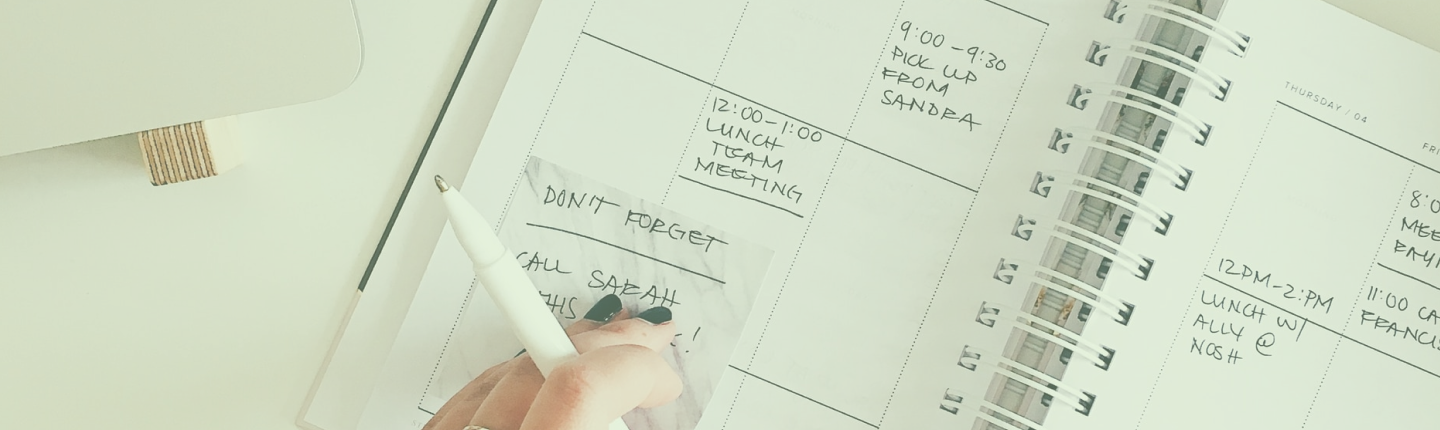 9:00-9:30
PICK UP
FROM
SANDRA
12:00-1:00
LUNCH
TEAM
MEETING
DON'T FORGET
CALL SARAH
THURSDAY / 04
12PM-2:PM
LUNCH W/
ALLY @
NOSH
11:00